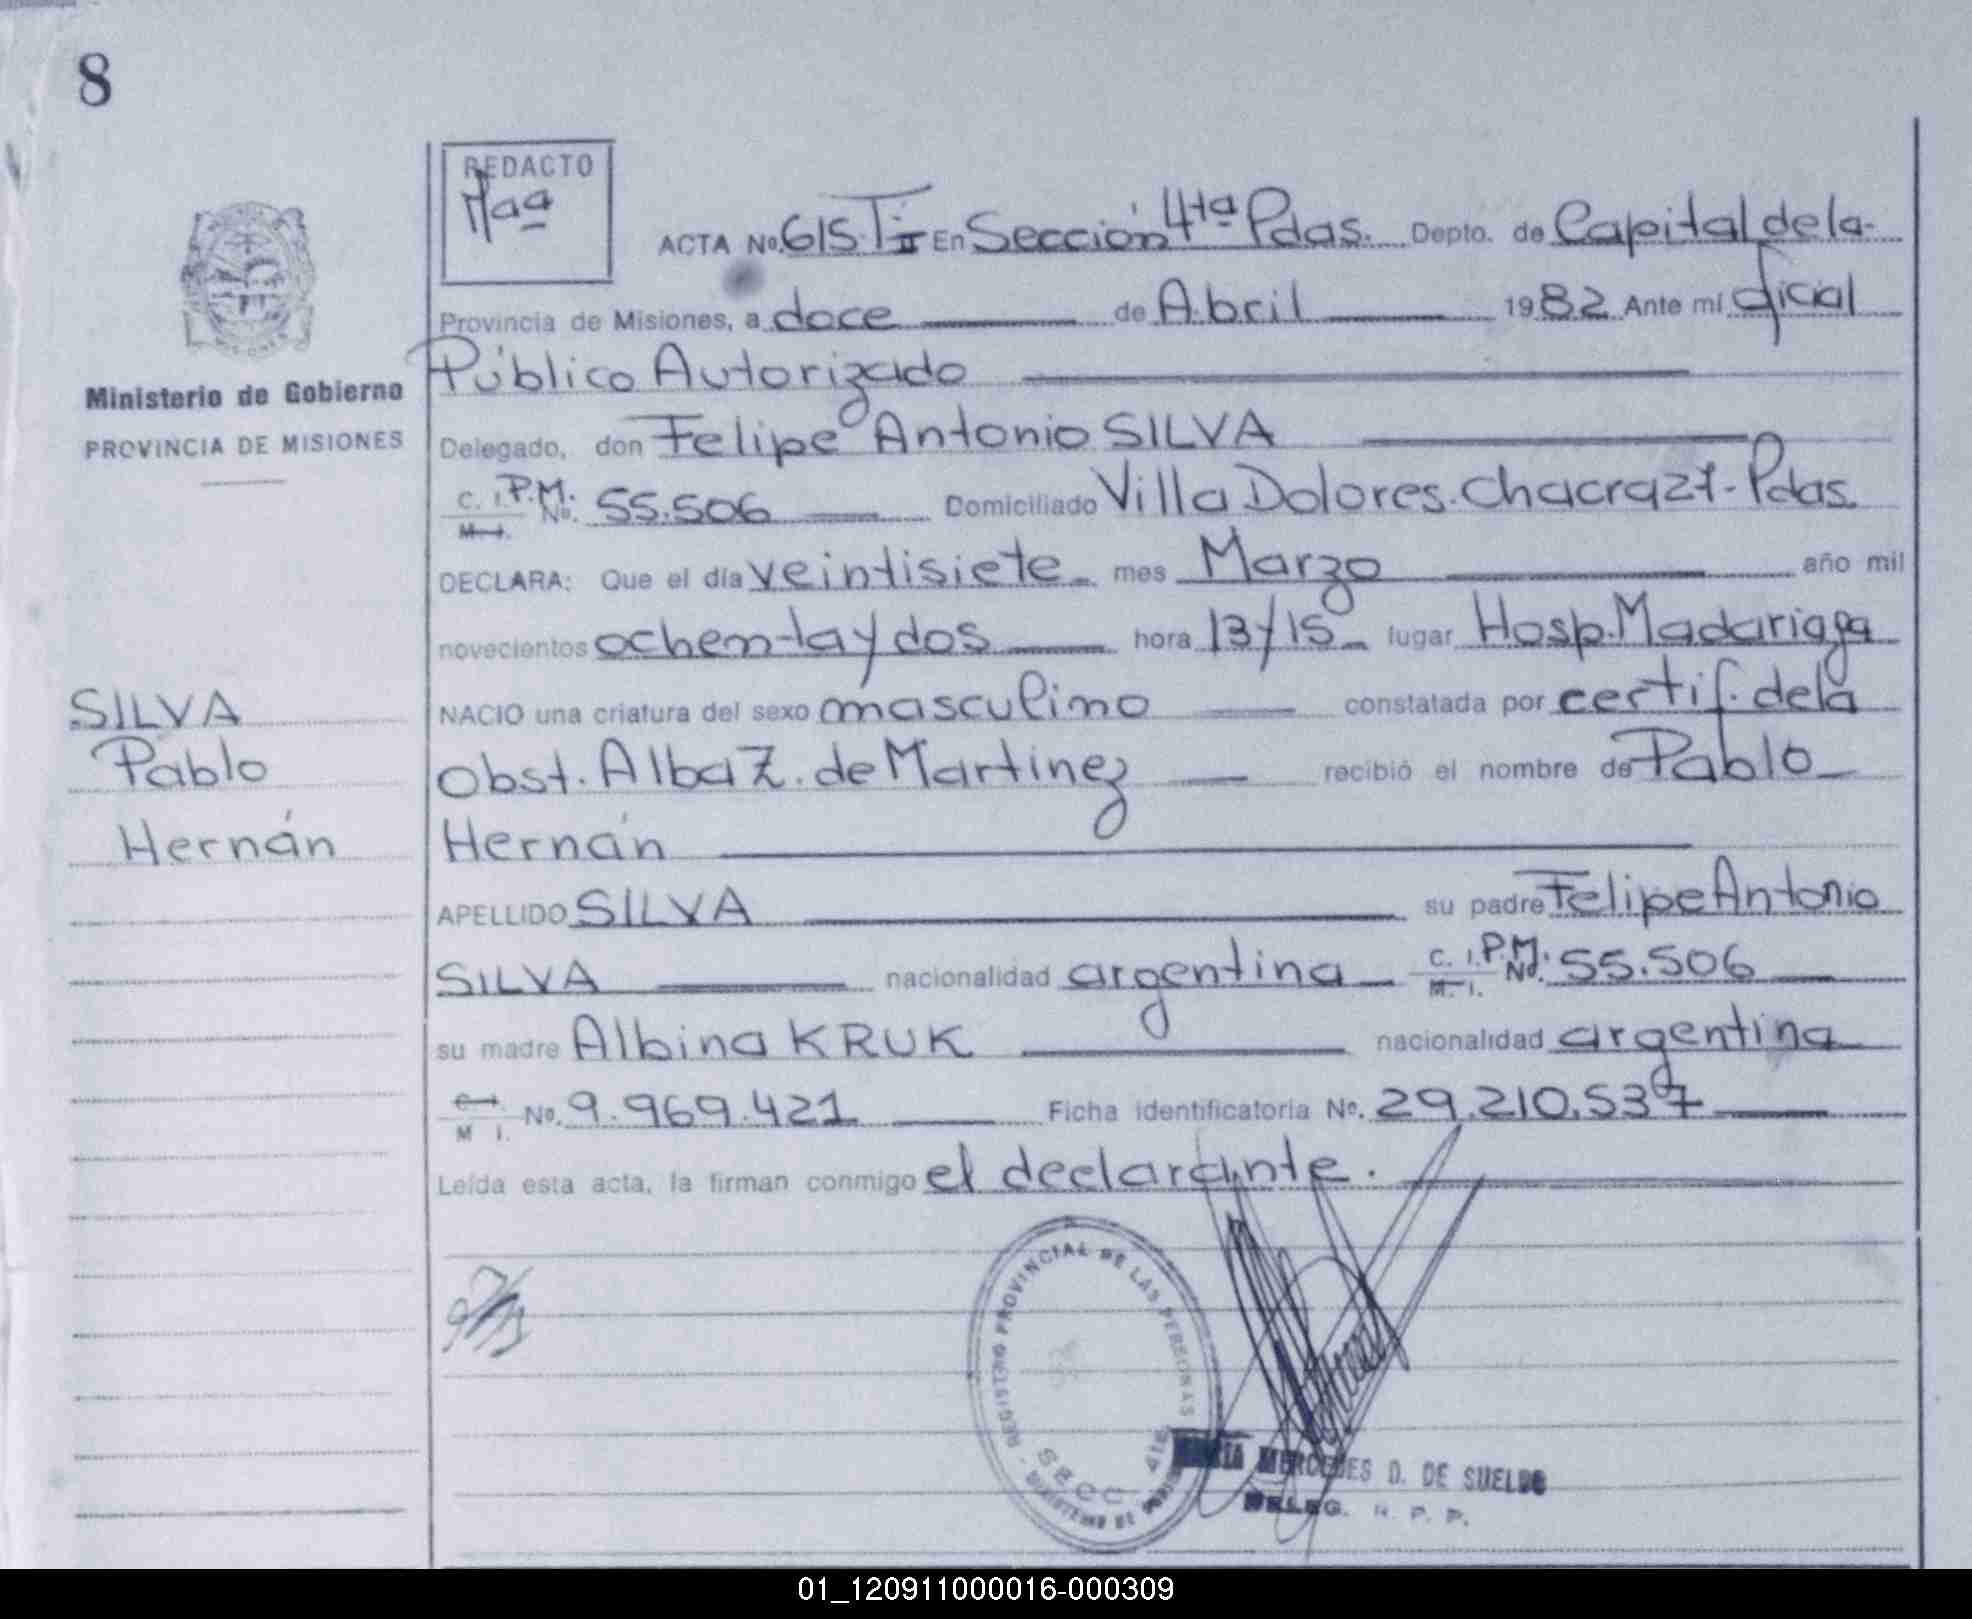 8
REDACTO
ACTA No. 615. T. II En Sección 4ta Pdas. Depto. de Capital de la
Provincia de Misiones, a doce de Abril 1982 Ante mí oficial
Ministerio de Gobierno
Público Autorizado
PROVINCIA DE MISIONES
Delegado, don Felipe Antonio SILVA
C. I. P.M. No. 55.506 Domiciliado Villa Dolores. Chacra 27 - Pdas.
M. I.
DECLARA: Que el día veintisiete mes Marzo año mil
novecientos ochentay dos hora 13y15 lugar Hosp. Madariaga
SILVA
NACIO una criatura del sexo masculino constatada por certif. de la
Pablo
Obst. Alba Z. de Martinez recibió el nombre de Pablo
Hernán
Hernán
APELLIDO SILVA su padre Felipe Antonio
SILVA nacionalidad argentina C. I. P.M. No. 55.506
M. I.
su madre Albina KRUK nacionalidad argentina
C. I. No. 9.969.421 Ficha identificatoria No. 29.210.537
M I.
Leída esta acta, la firman conmigo el declarante.
REGISTRO PROVINCIAL DE LAS PERSONAS
SECC 4ta
MARIA MERCEDES D. DE SUELDO
DELEG. R. P. P.
01_120911000016-000309